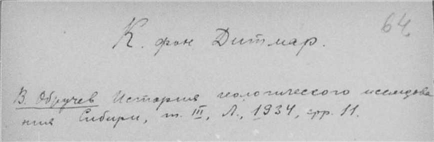 64.
К. фон Дитмар.
В. Обручев История геологического исследова
ния Сибири, т. III, Л., 1934, стр. 11.